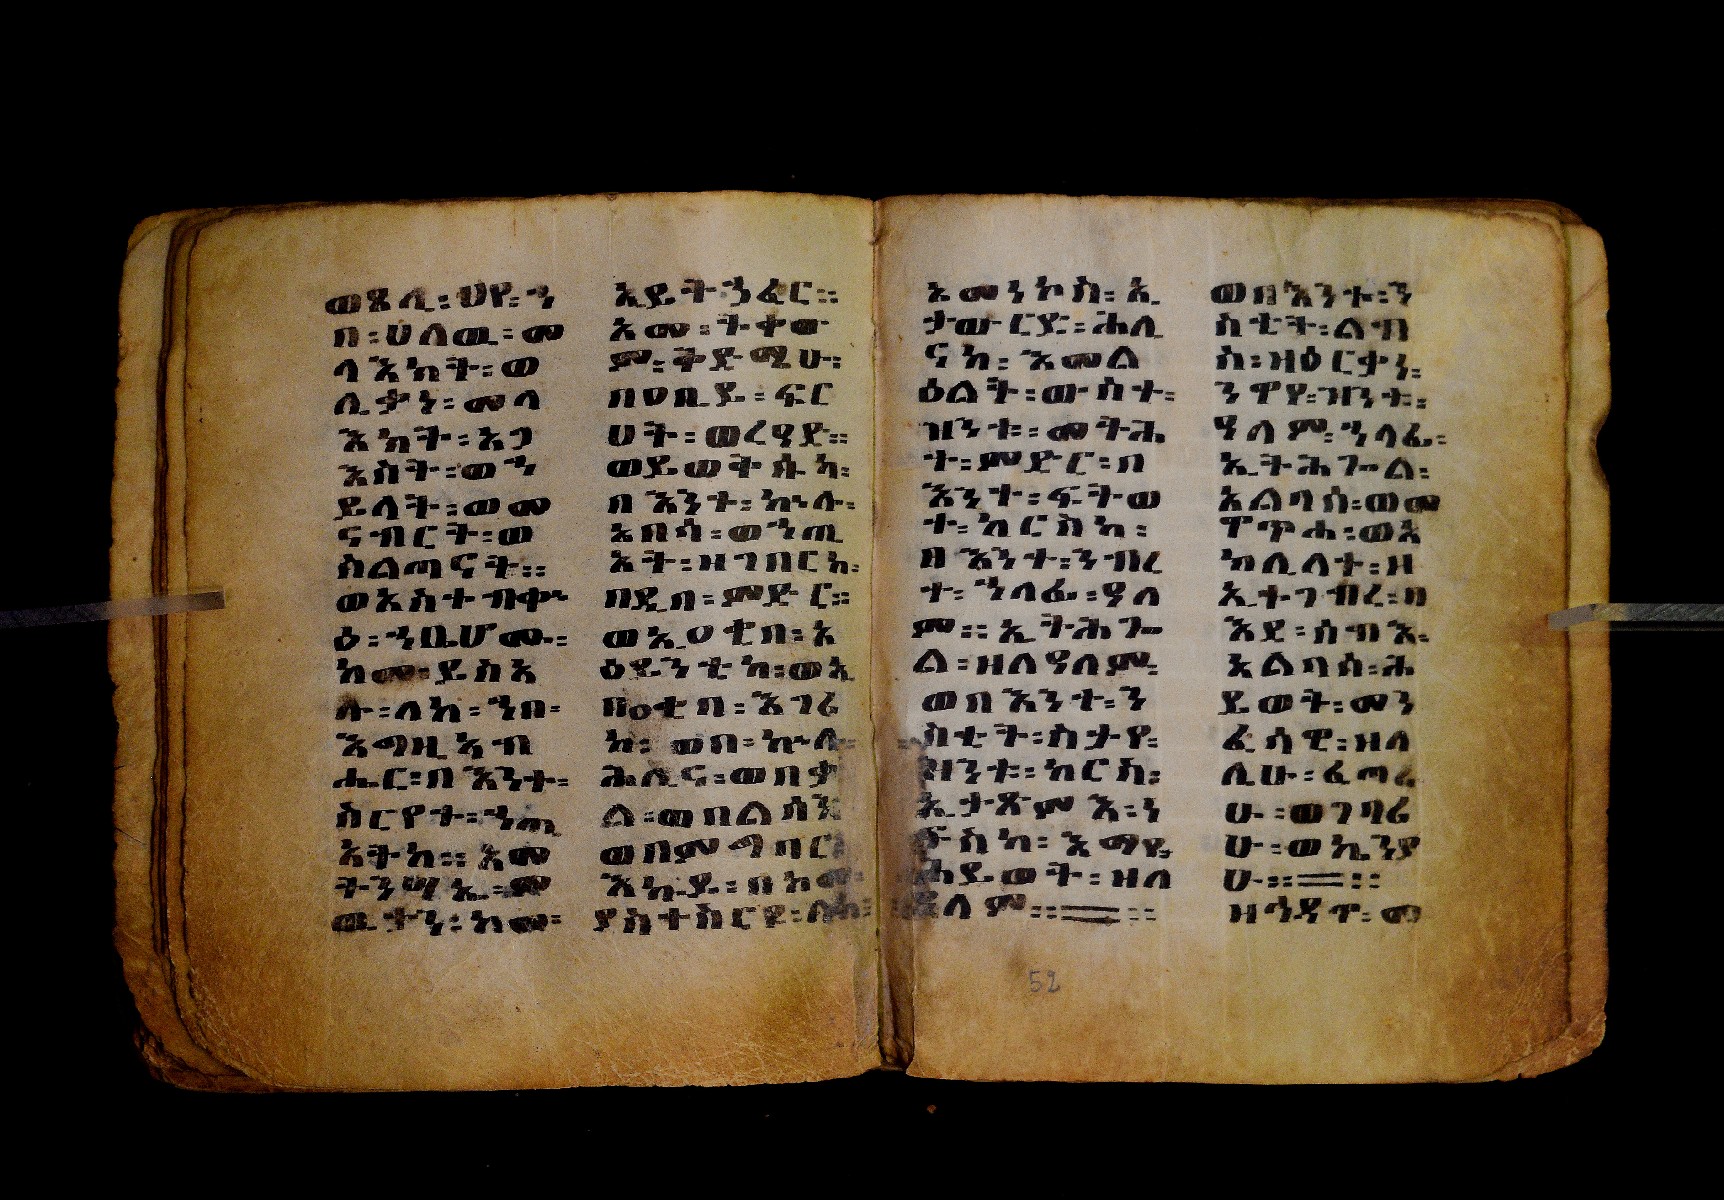 ወጸሊ፡ ሀየ፡ ን
በ፡ ሀለዉ፡ መ
ላእክት፡ ወ
ሊቃነ፡ መላ
እክት፡ አጋ
እስት፡ ወኀ
ይላት፡ ወመ
ናብርት፡ ወ
ስልጣናት።
ወአስተብቍ
ዕ፡ ኀቤሆሙ፡
ከመ፡ ይስአ
ሉ፡ ለከ፡ ኀበ፡
እግዚአብ
ሔር፡ በእንተ፡
ስርየተ፡ ኀጢ
አትከ። እመ
ትንሣኢ፡ መ
ዊትነ፡ ከመ፡
ኢይትኀፈር።
አመ፡ ትቀው
ም፡ ቅድሜሁ፡
በዐቢይ፡ ፍር
ሀት፡ ወረዓድ።
ወይወቅሱከ፡
በእንተ፡ ኵሉ፡
አበሳ፡ ወኀጢ
አት፡ ዘገበርከ፡
በዲበ፡ ምድር።
ወኢዐቂበ፡ አ
ዕይንቲከ፡ ወአ
በዐቂበ፡ እገሪ
ከ፡ ወበ፡ ኵሉ፡
ሕሊና፡ ወበቃ
ል፡ ወበልሳን
ወበምግባር
እኪይ፡ በከመ፡
ያስተስርዪ፡ ለከ፡
አመንኮስ፡ ኢ
ታውርድ፡ ሕሊ
ናከ፡ እመል
ዕልት፡ ውስተ፡
ዝንቱ፡ መትሕ
ተ፡ ምድር፡ በ
እንተ፡ ፍትወ
ተ፡ ከርስከ፡
በእንተ፡ ንብረ
ተ፡ ኀላፊ፡ ዓለ
ም። ኢትሕጐ
ል፡ ዘለዓለም፡
ወበእንተ፡ ን
ስቲት፡ ስታየ፡
ዝንቱ፡ ከርስ፡
ኢታጽምእ፡ ነ
ፍስከ፡ እማየ፡
ሕይወት፡ ዘለ
ዓለም።
ወበእንተ፡ ን
ስቲት፡ ልብ
ስ፡ ዘዕርቃነ፡
ንዋየ፡ ዝንቱ፡
ዓለም፡ ኀላፊ፡
ኢትሕጐል፡
አልባሰ፡ ወመ
ፐጥሐ፡ ወአ
ክሊላተ፡ ዘ
ኢተገብረ፡ በ
እደ፡ ሰብእ፡
አልባሰ፡ ሕ
ይወት፡ መን
ፈሳዊ፡ ዘለ
ሊሁ፡ ፈጣሪ
ሁ፡ ወገባሪ
ሁ፡ ወኬንያ
ሁ።
ዘኅዳጥ፡ መ
52